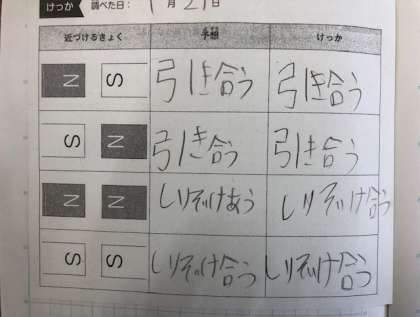 けっか 調べた日： 月 21日
近づけるきょく 予想 けっか
N S 引き合う 引き合う
S N 引き合う 引き合う
N N しりぞけあう しりぞけ合う
S S しりぞけ合う しりぞけ合う